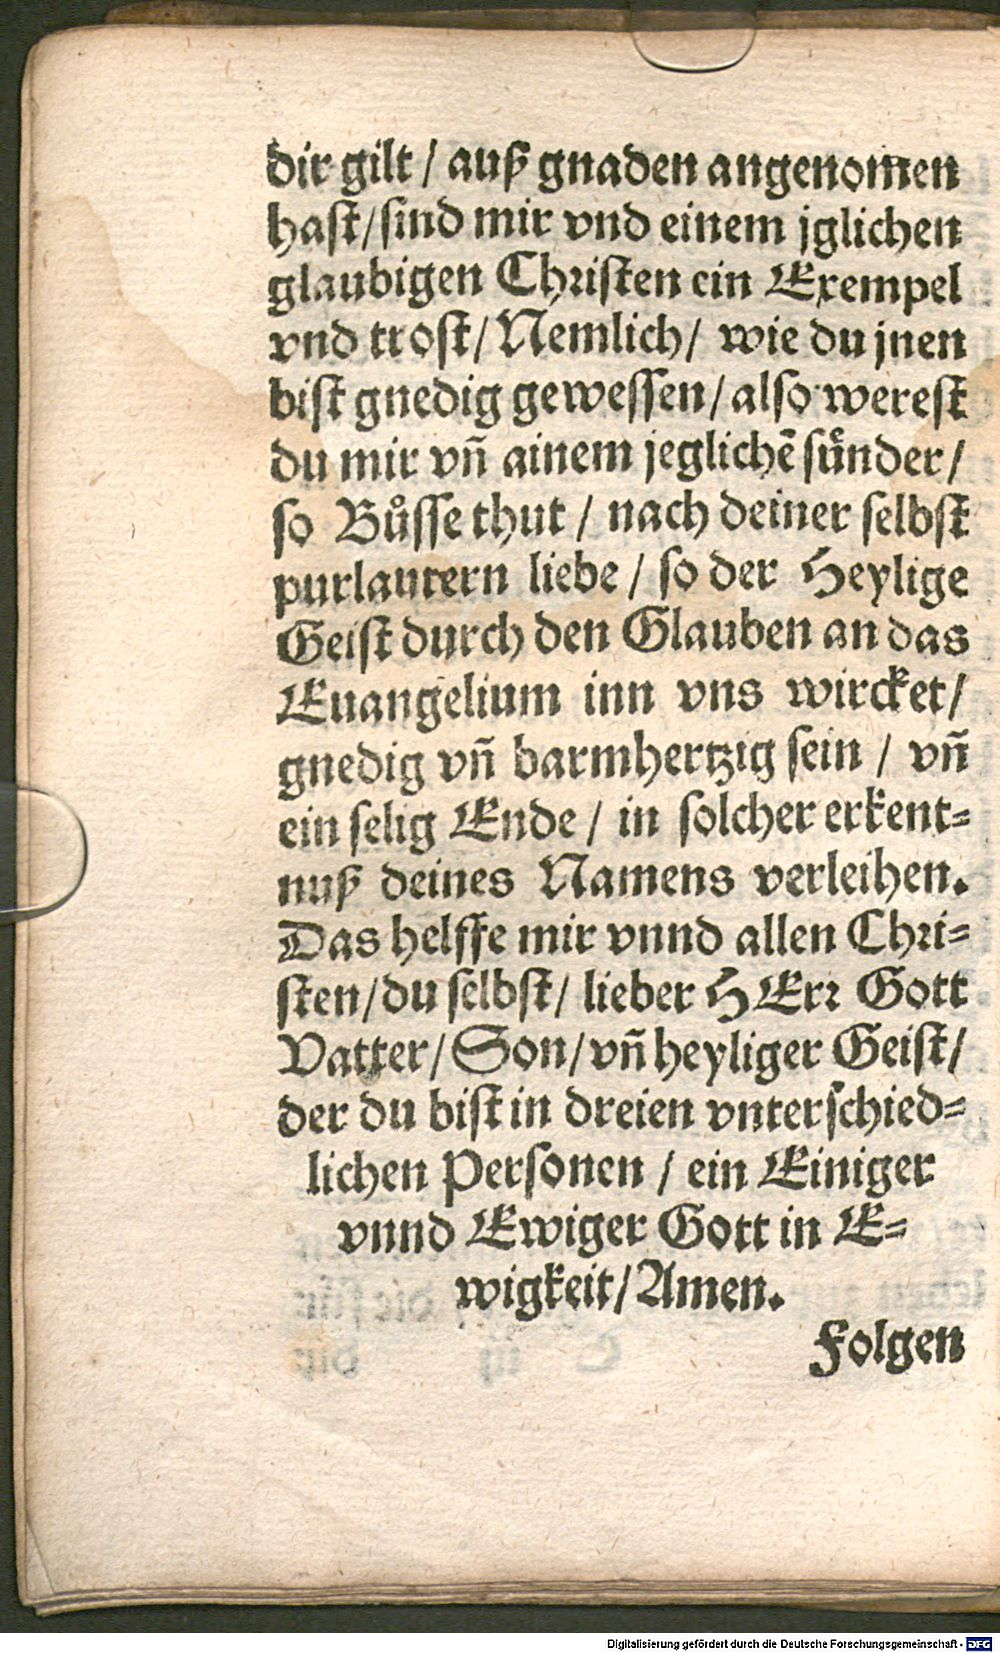 dir gilt / auß gnaden angenomen
hast/sind mir vnd einem jglichen
glaubigen Christen ein Exempel
vnd trost/Nemlich/ wie du jnen
bist gnedig gewessen/also werest
du mir vñ ainem jeglichẽ sünder/
so Bůsse thut / nach deiner selbst
purlautern liebe / so der Heylige
Geist durch den Glauben an das
Euangelium inn vns wircket/
gnedig vñ barmhertzig sein / vñ
ein selig Ende / in solcher erkent-
nuß deines Namens verleihen.
Das helffe mir vnnd allen Chri-
sten/du selbst/ lieber HErr Gott
Vatter/Son/vñ heyliger Geist/
der du bist in dreien vnterschied-
lichen Personen / ein Einiger
vnnd Ewiger Gott in E-
wigkeit/Amen.
Folgen
Digitalisierung gefördert durch die Deutsche Forschungsgemeinschaft - DFG